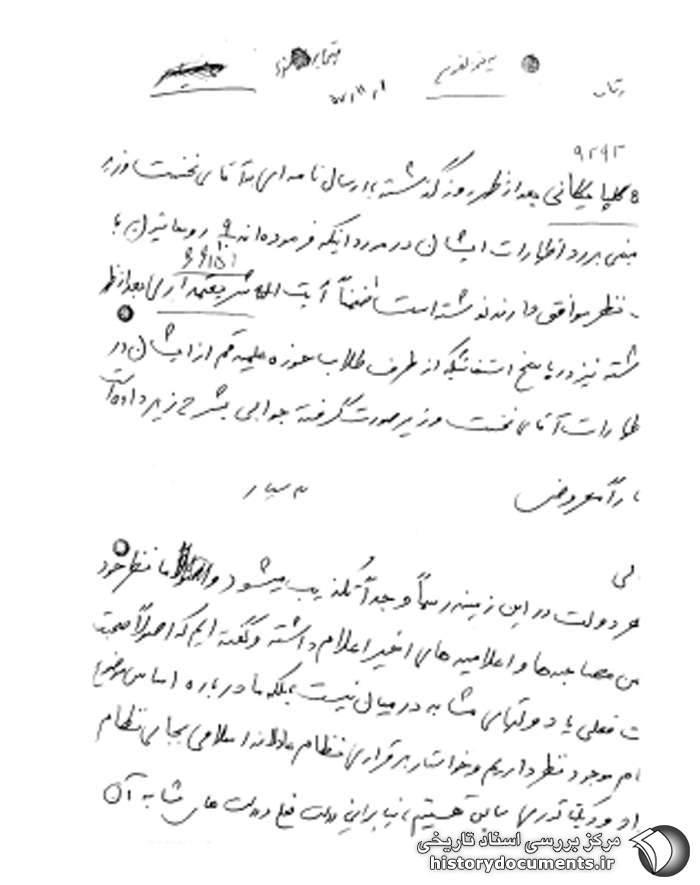 ۹۲۹۲
گلپایگانی بعد از ظهر روز گذشته با ارسال نامه ای به آقای نخست وزیر
مبنی بر رد اظهارات ایشان در مورد اینکه فرموده اند روحانیون با
نظر موافق دارند نوشته است ضمناً آیت اله شریعتمداری بعد از ظهر
شته نیز در پاسخ استفتائیکه از طرف طلاب حوزه علمیه قم از ایشان در
ظهارات آقای نخست وزیر صورت گرفته جوابی بشرح زیر داده است
مراتب معروض
لی
در این زمینه رسماً و جداً تکذیب میشود و ما نظر خود
من مصاحبه ها و اعلامیه های اخیر اعلام داشته و گفته ایم که اصولاً صحبت
ت فعلی یا دولتهای مشابه در میان نیست بلکه ما درباره اساس موضوع
ام موجود نظر داریم و خواستار برقراری نظام عادلانه اسلامی بجای نظام
هستیم بنابراین دولت های مشابه آن
مرکز بررسی اسناد تاریخی
historydocuments.ir